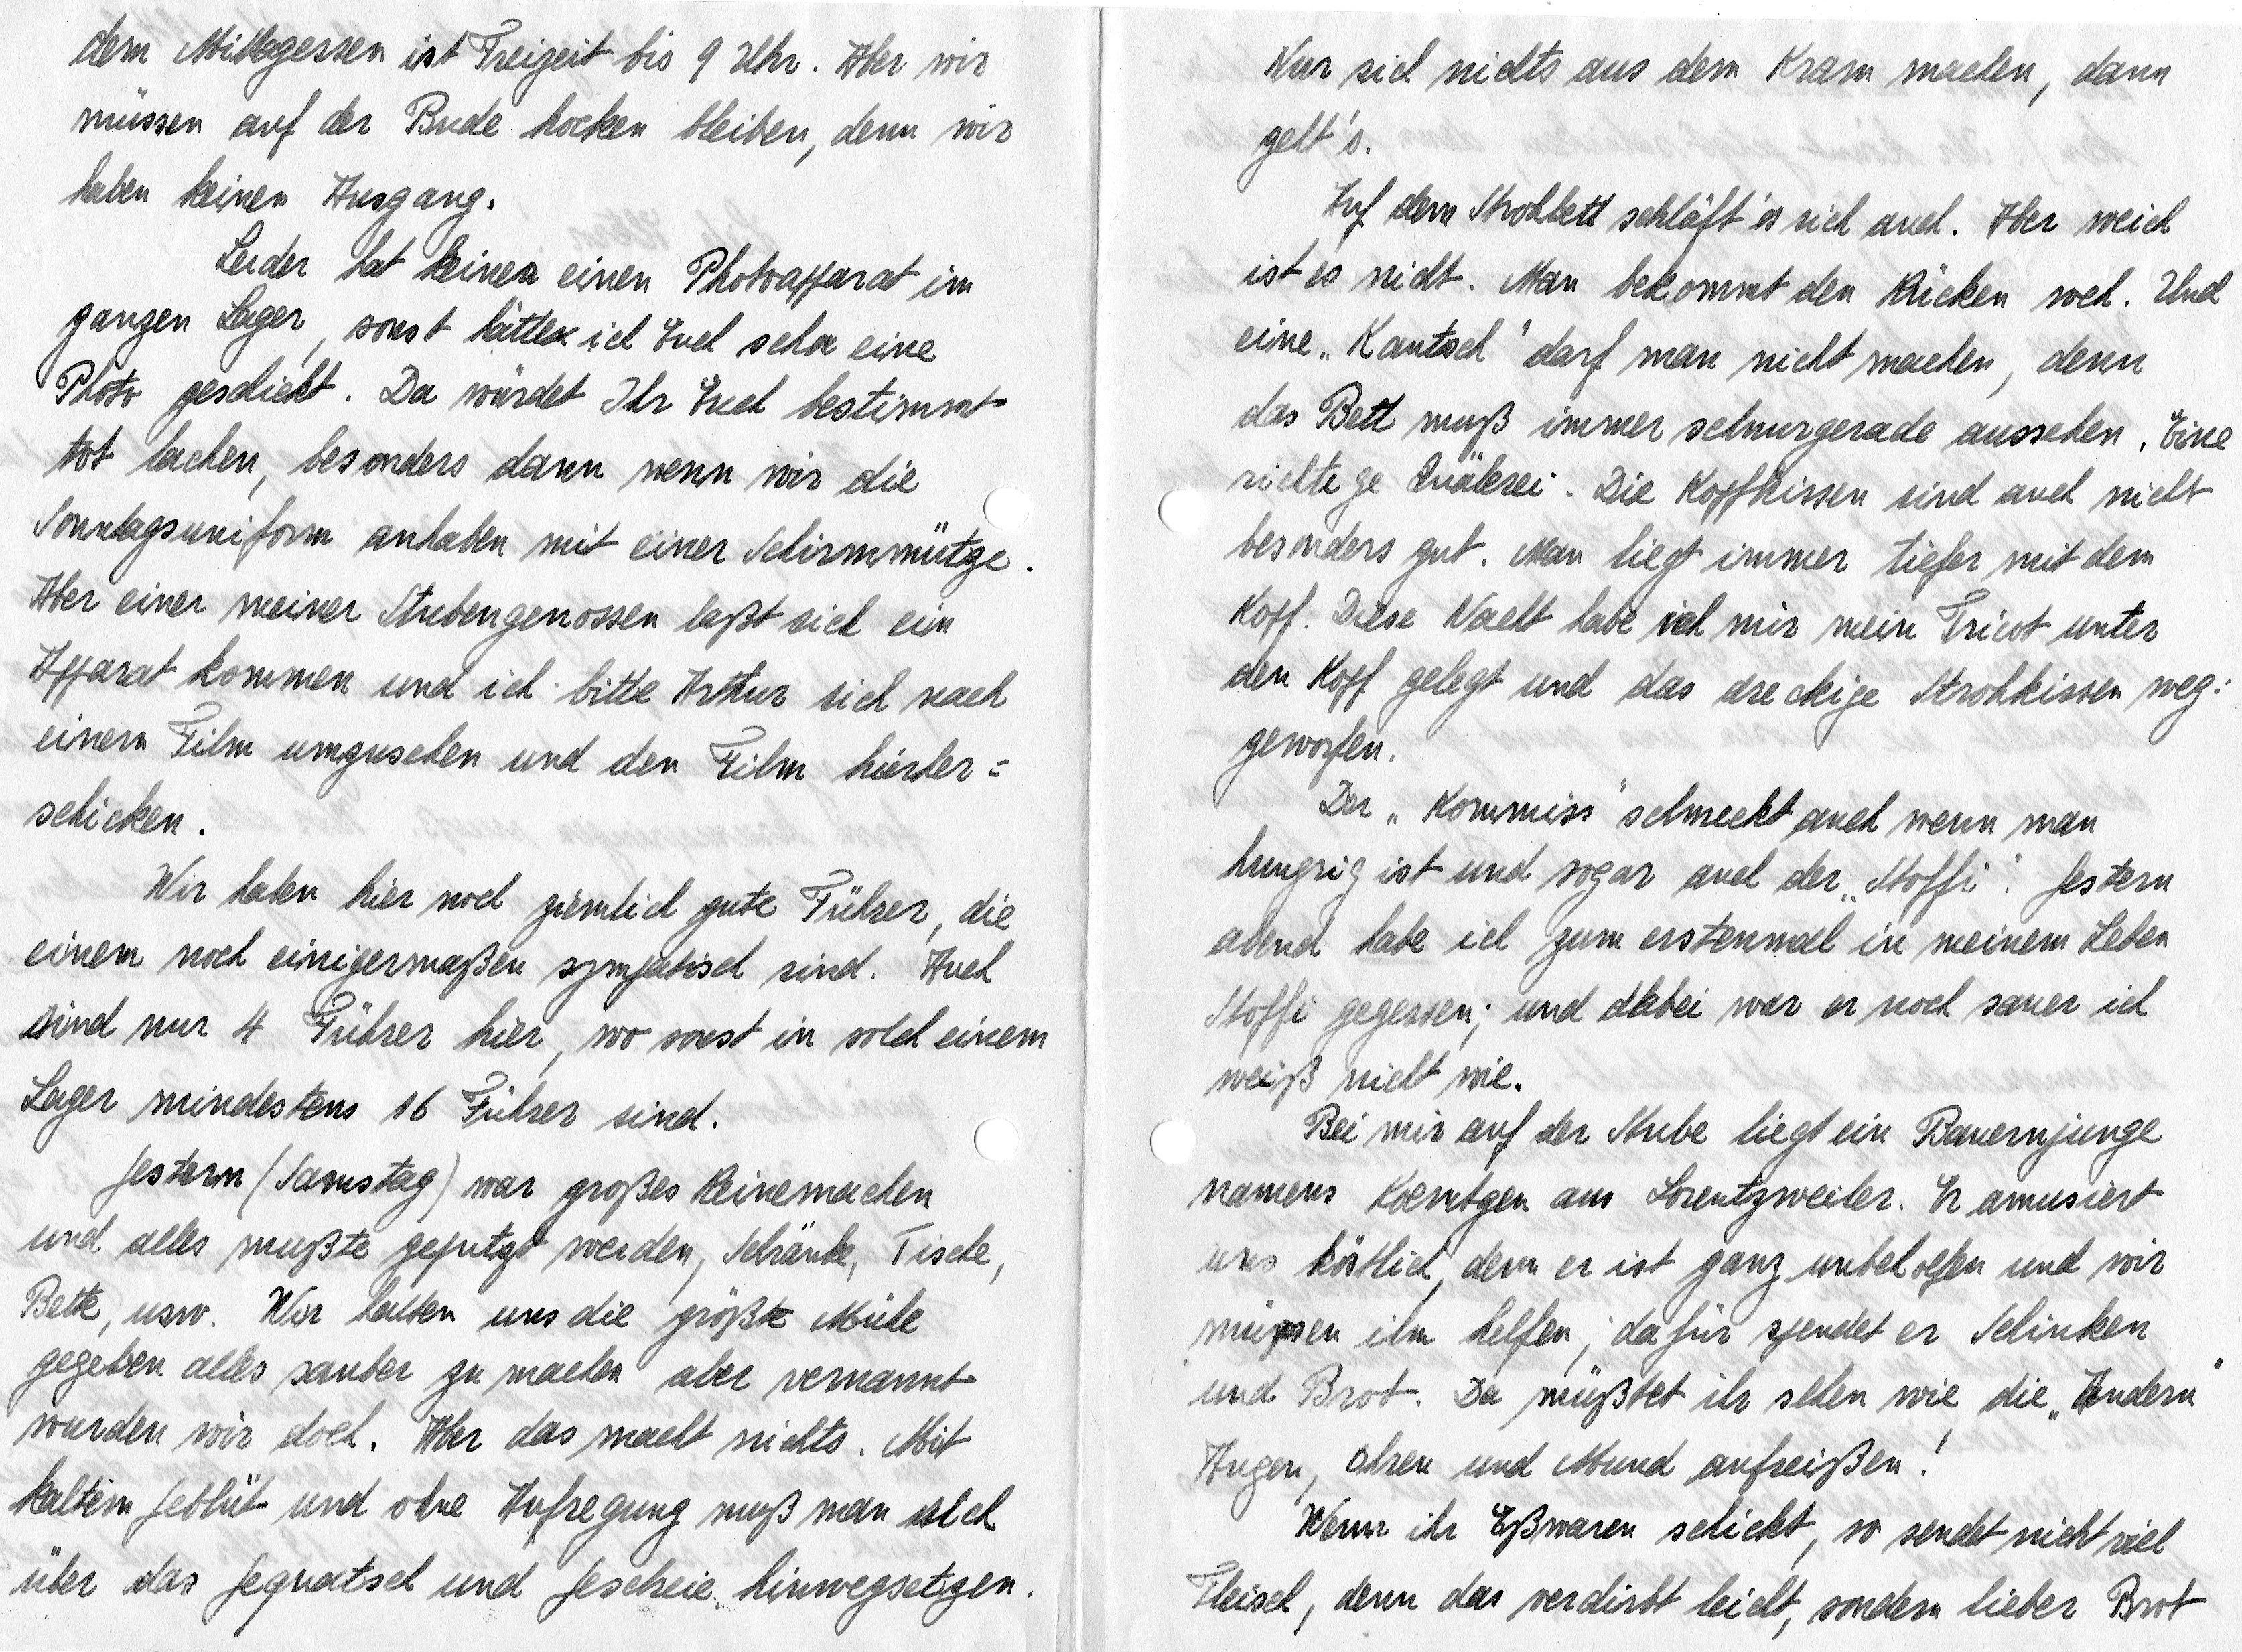 dem Mittagessen ist Freizeit bis 9 Uhr. Aber wir
müssen auf der Bude hocken bleiben, denn wir
haben keinen Ausgang.
Leider hat keiner einen Photoapparat im
ganzen Lager, sonst hätte ich Euch schon eine
Photo geschickt. Da würdet Ihr Euch bestimmt
tot lachen, besonders dann wenn wir die
Sonntagsuniform anhaben mit einer Schirmmütze.
Aber einer meiner Stubengenossen laßt sich ein
Apparat kommen und ich bitte Arthur sich nach
einem Film umzusehen und den Film hierher=
schicken.
Wir haben hier noch ziemlich gute Führer, die
einem noch einigermaßen sympatisch sind. Auch
sind nur 4 Führer hier, wo sonst in solch einem
Lager mindestens 16 Führer sind.
Gestern (Samstag) war großes Reinemachen
und alles mußte geputzt werden, Schränke, Tische,
Bette, usw. Wir hatten uns die größte Mühe
gegeben alles sauber zu machen aber vernannt
wurden wir doch. Aber das macht nichts. Mit
kaltem Geblüt und ohne Aufregung muß man sich
über das Gequatsch und Geschreie hinwegsetzen.
Nur sich nichts aus dem Kram machen, dann
geht's.
Auf dem Strohbett schläft's sich auch. Aber weich
ist es nicht. Man bekommt den Rücken weh. Und
eine „Kautsch" darf man nicht machen, denn
das Bett muß immer schnurgerade aussehen. Eine
richtige Quälerei. Die Kopfkissen sind auch nicht
besonders gut. Man liegt immer tiefer mit dem
Kopf. Diese Nacht habe ich mir mein Tricot unter
den Kopf gelegt und das dreckige Strohkissen weg=
geworfen.
Der „Kommiss" schmeckt auch wenn man
hungrig ist und sogar auch der „Stoffi". Gestern
abend habe ich zum erstenmal in meinem Leben
Stoffi gegessen; und dabei war er noch sauer ich
weiß nicht wie.
Bei mir auf der Stube liegt ein Bauernjunge
namens Koentgen aus Lorentzweiler. Er amusiert
uns köstlich, denn er ist ganz unbeholfen und wir
müssen ihm helfen; dafür spendet er Schinken
und Brot. Da müßtet ihr sehen wie die „Andern"
Augen, Ohren und Mund aufreißen!
Wenn ihr Eßwaren schickt, so sendet nicht viel
Fleisch, denn das verdirbt leicht, sondern lieber Brot